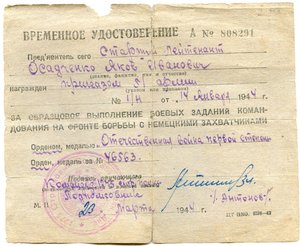 ВРЕМЕННОЕ УДОСТОВЕРЕНИЕ А № 808291
Пред'явитель сего Старший лейтенант
Осадченко Яков Иванович
(звание, фамилия, имя и отчество)
награжден приказом 51 армии
№ 1/н от 14 января 1944 г.
ЗА ОБРАЗЦОВОЕ ВЫПОЛНЕНИЕ БОЕВЫХ ЗАДАНИЙ КОМАН-
ДОВАНИЯ НА ФРОНТЕ БОРЬБЫ С НЕМЕЦКИМИ ЗАХВАТЧИКАМИ
Орденом, медалью: Отечественная война первой степени
Орден, медаль за № 46563.
Подпись вручающего
Подполковник
/Антонов/
М. П. 23 марта 1944 г.